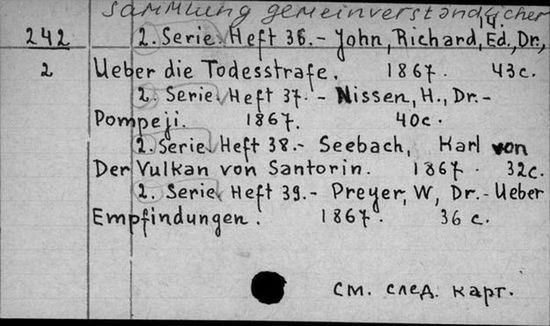 Sammlung gemeinverständlicher
14.
242 2. Serie. Heft 36.- John, Richard, Ed., Dr.,
2 Ueber die Todesstrafe. 1867. 43c.
2. Serie. Heft 37.- Nissen, H., Dr.-
Pompeji. 1867. 40c.
2. Serie. Heft 38.- Seebach, Karl von
Der Vulkan von Santorin. 1867. 32c.
2. Serie. Heft 39.- Preyer, W., Dr.- Ueber
Empfindungen. 1867. 36 c.
см. след. карт.